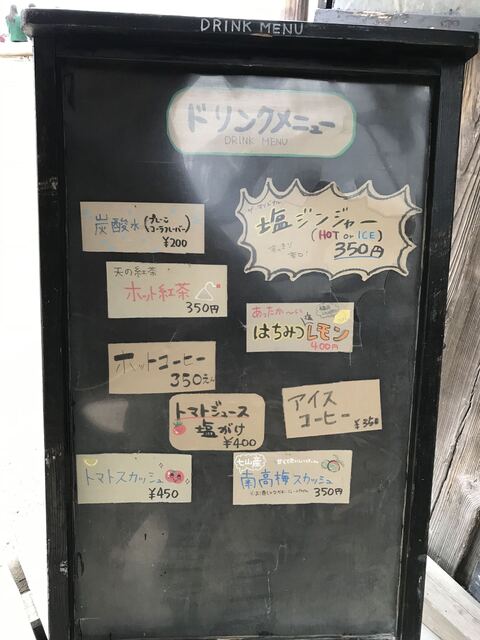 DRINK MENU
ドリンクメニュー
DRINK MENU
炭酸水(プレーン
コーラフレーバー)
¥200
塩ジンジャー
(HOT or ICE)
すっきり
辛口!
350円
天の紅茶
ホット紅茶
350円
あったか〜い
はちみつ塩レモン
400円
ホットコーヒー
350えん
トマトジュース
塩がけ
¥400
アイス
コーヒー ¥350
トマトスカッシュ
¥450
七山産
南高梅スカッシュ
350円